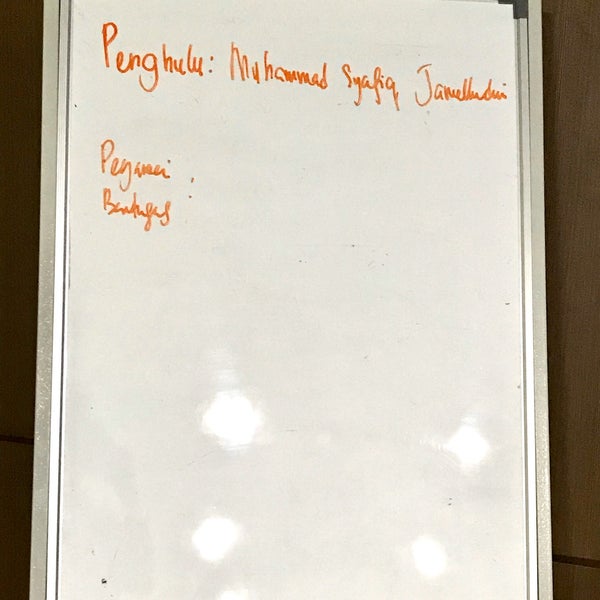 Penghulu: Muhammad Syafiq Jamelludin
Pegawai :
Bertugas